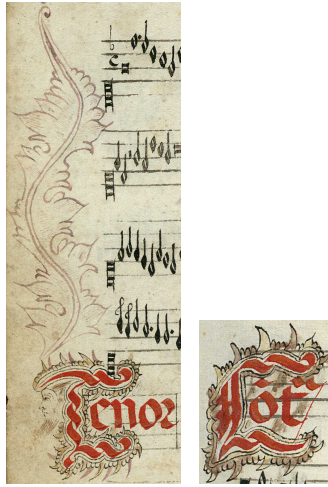 Tenor
Cōt